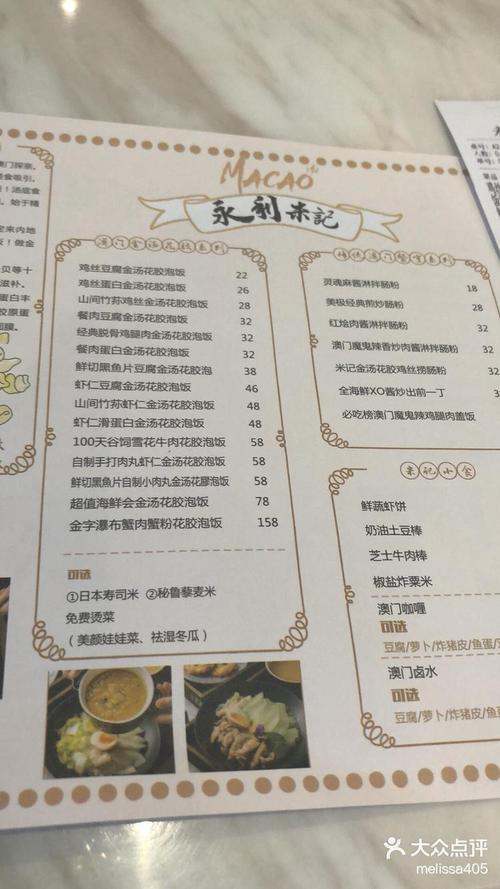 MACAO
永利米記
澳门金汤花胶系列
鸡丝豆腐金汤花胶泡饭 22
鸡丝蛋白金汤花胶泡饭 26
山间竹荪鸡丝金汤花胶泡饭 28
餐肉豆腐金汤花胶泡饭 32
经典脱骨鸡腿肉金汤花胶泡饭 32
餐肉蛋白金汤花胶泡饭 32
鲜切黑鱼片豆腐金汤花胶泡 38
虾仁豆腐金汤花胶泡饭 46
山间竹荪虾仁金汤花胶泡饭 48
虾仁滑蛋金汤花胶泡饭 48
100天谷饲雪花牛肉花胶泡饭 58
自制手打肉丸虾仁金汤花胶泡饭 58
鲜切黑鱼片自制小肉丸金汤花膠泡饭 58
超值海鲜会金汤花胶泡饭 78
金字瀑布蟹肉蟹粉花胶泡饭 158
可选
①日本寿司米 ②秘鲁藜麦米
免费烫菜
（美颜娃娃菜、祛湿冬瓜）
灵魂麻酱淋拌肠粉 18
美极经典煎炒肠粉 28
红烩肉酱淋拌肠粉 32
澳门魔鬼辣香炒肉酱淋拌肠粉 32
米记金汤花胶鸡丝捞肠粉 32
全海鲜XO酱炒出前一丁
必吃榜澳门魔鬼辣鸡腿肉盖饭
米记小食
鲜蔬虾饼
奶油土豆棒
芝士牛肉棒
椒盐炸粟米
澳门咖喱
可选
豆腐/萝卜/炸猪皮/鱼蛋/
澳门卤水
可选
豆腐/萝卜/炸猪皮/鱼
大众点评
melissa405